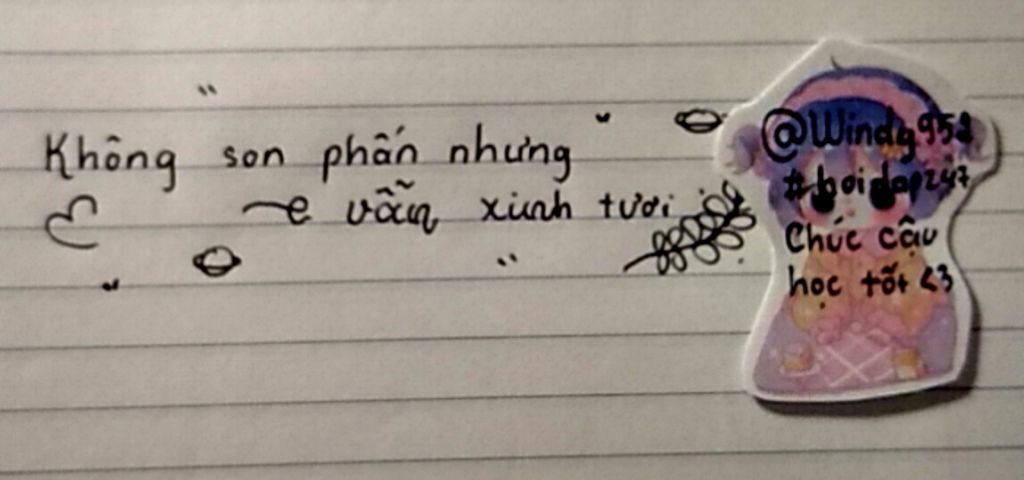 Không son phấn nhưng
e vẫn xinh tươi
@Windy952
#hoidap247
Chúc cậu
học tốt <3